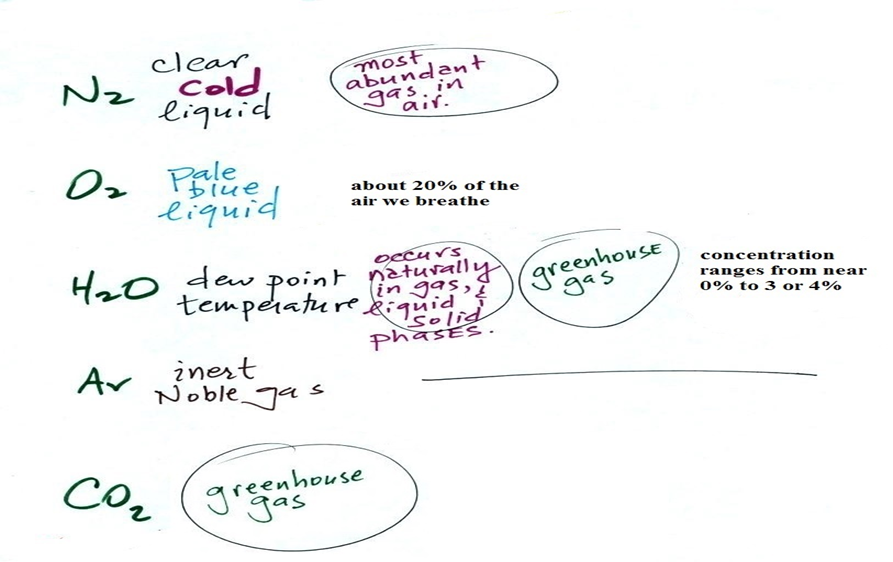 N2
clear
cold
liquid
most
abundant
gas in
air.
O2
Pale
blue
liquid
about 20% of the
air we breathe
H2O
dew point
temperature
occurs
naturally
in gas,
liquid &
solid
phases.
greenhouse
gas
concentration
ranges from near
0% to 3 or 4%
Ar
inert
Noble gas
CO2
greenhouse
gas